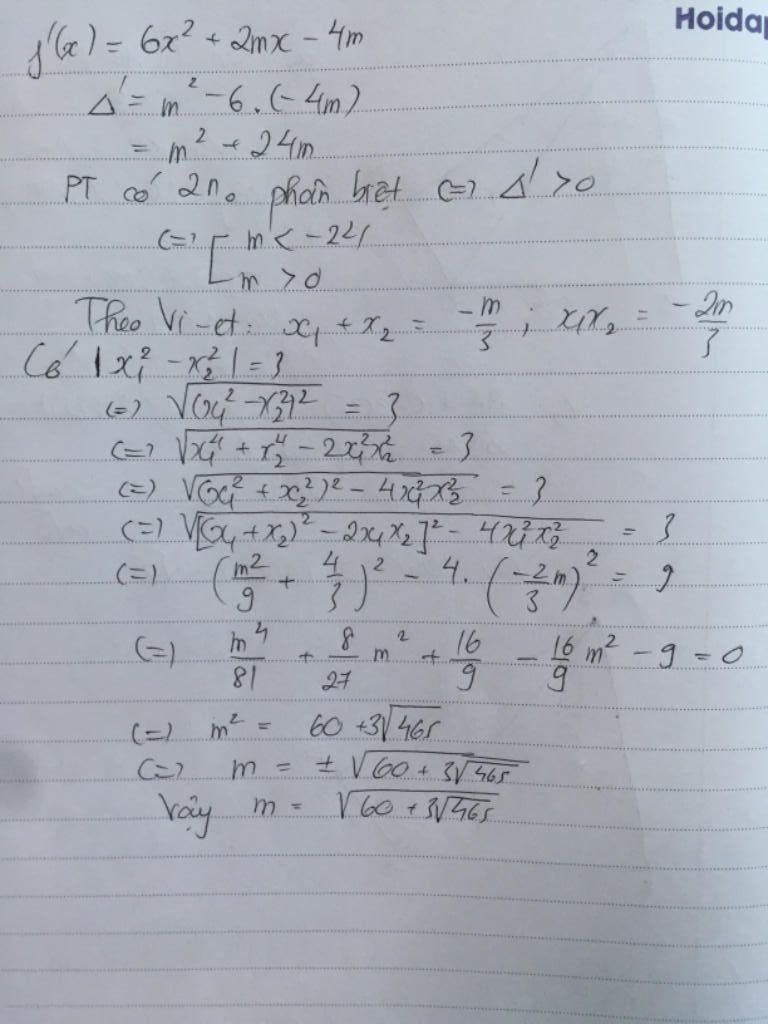 Hoidap
f'(x) = 6x² + 2mx - 4m
Δ' = m² - 6.(-4m)
= m² + 24m
PT có 2 n₀ phân biệt (=) Δ' > 0
(=) [ m < -24
m > 0
Theo Vi-et: x₁ + x₂ = -m/3 ; x₁x₂ = -2m/3
Có |x₁² - x₂²| = 3
(=) √(x₁² - x₂²)² = 3
(=) √(x₁⁴ + x₂⁴ - 2x₁²x₂²) = 3
(=) √((x₁² + x₂²)² - 4x₁²x₂²) = 3
(=) √([(x₁ + x₂)² - 2x₁x₂]² - 4x₁²x₂²) = 3
(=) (m²/9 + 4/3)² - 4.(-2/3 m)² = 9
(=) m⁴/81 + 8/27 m² + 16/9 - 16/9 m² - 9 = 0
(=) m² = 60 + 3√465
(=) m = ± √(60 + 3√465)
Vậy m = √(60 + 3√465)